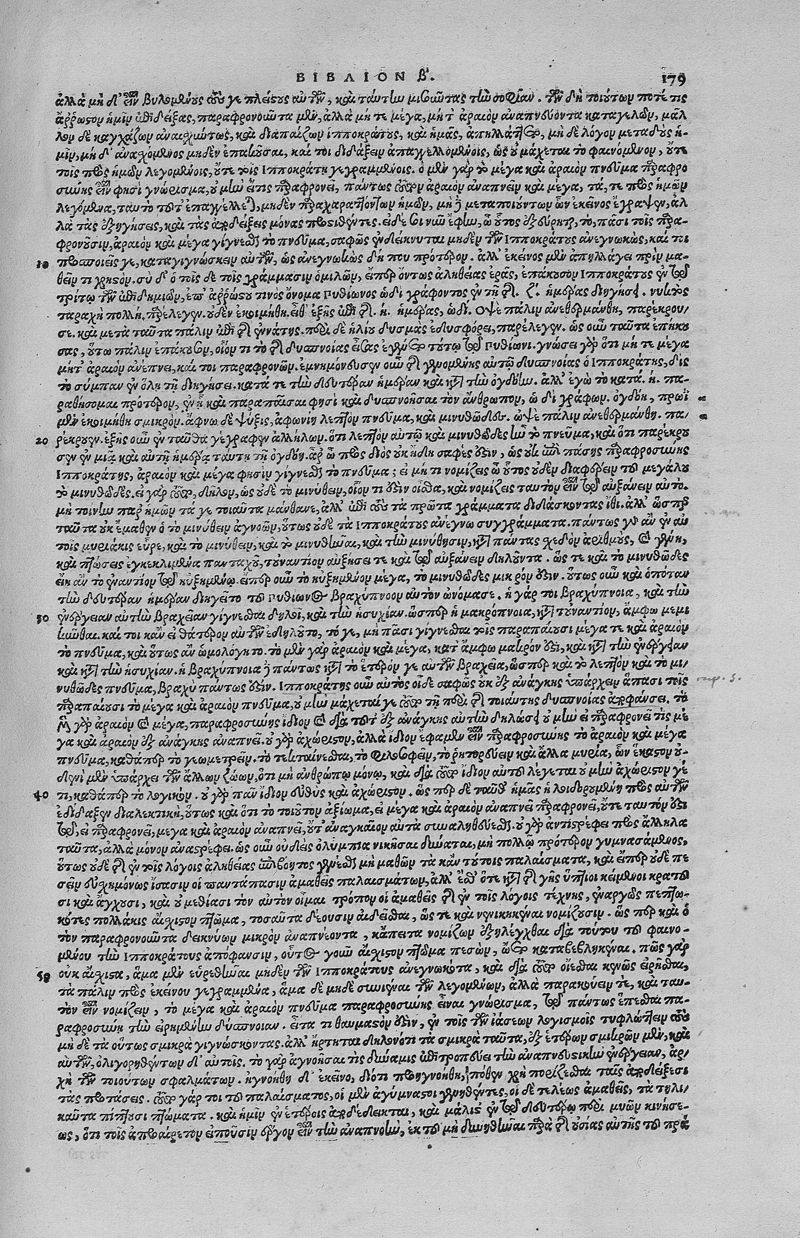 ΒΙΒΛΙΟΝ β΄. 179
ἀλλὰ μὴ δ' εἶναι βουλομένους
ἄῤῥωστον ἡμῖν ἐπιδείξας, παραφρονοῦντα μὲν, ἀλλὰ μή τε μέγα, μήτ' ἀραιὸν ἀναπνέοντα καταγελᾶν, μᾶλ
λον δὲ καγχάζων ἀναισχώτως, καὶ διαπαίζων Ἱπποκράτους, καὶ ἡμᾶς, μὴ δὲ λόγον μεταδοὺς ἡ-
μῖν, μὴ δ' ἀνασχόμενος μηδὲν ἐπακοῦσαι, καί τοι διδάξειν ἐπαγγελλομένοις, ὡς οὐ μάχεται τὸ φαινόμενον, οὔτε
τοῖς πρὸς ἡμῶν λεγομένοις, οὔτε τοῖς Ἱπποκράτει γεγραμμένοις. ὁ μὲν γὰρ τὸ μέγα καὶ ἀραιὸν πνεῦμα παραφρο
σύνης εἶναί φησι γνώρισμα, οὐ μὴν εἴ τις παραφρονεῖ, πάντως τοῦτον ἀραιὸν ἀναπνεῖν καὶ μέγα, τά, τε πρὸς ἡμῶν
λεγόμενα, ταὐτὸ τοῦτ' ἐπαγγέλλεται, μηδὲν παραχαραττόντων ἡμῶν, μὴ δὲ μεταποιούντων ὧν ἐκεῖνος ἔγραψεν, ἀλ
λὰ τὰς ἐξηγήσεις, καὶ τὰς ἀποδείξεις μόνας προστιθέντες.
φρονοῦσιν, ἀραιὸν καὶ μέγα γίγνεσθαι τὸ πνεῦμα, σαφῶς ἐνδείκνυται μηδὲν τῶν Ἱπποκράτους ἀνεγνωκὼς, καί τοι
10 προσποιεῖς γε, καταγιγνώσκειν αὐτῶν, ὡς ἀνεγνωκὼς δή που πρότερον. ἀλλ' ἐκεῖνος μὲν ἀπηλλάγει πρὶν μα-
θεῖν τι χρηστόν. σὺ δ' ὁ τοῖς δὲ τοῖς γράμμασιν ὁμιλῶν, εἴπερ ὄντως ἀληθείας ἐρᾷς, ἐπάκουσον Ἱπποκράτους ἐν τῷ
τρίτῳ τῶν ἐπιδημιῶν, ἐπ' ἀῤῥώστου τινὸς ὄνομα Πυθίωνος ὡδὶ γράφοντος
παραχὴ πολλὴ, παρέλεγεν. οὐδὲν ἐκοιμήθη. εἶθ' ἑξῆς ἐπὶ τῆς η. ἡμέρας, ὡδί. ὀψὲ πάλιν ἀνεθερμάνθη, παρέκρου-
σε. καὶ μετὰ ταῦτα πάλιν ἐπὶ τῆς ἐννάτης. περὶ δὲ ἡλίου δυσμὰς ἐδυσφόρει, παρέλεγεν. ὡς οὖν ταῦτα ἐπήκου
σας, οὕτω πάλιν ἐπάκουσον, οἷόν τι τὸ τῆς δυσπνοίας εἶδος ἐγένετο τούτῳ τῷ Πυθίωνι. γνώσει γὰρ ὅτι μή τε μέγα
μήτ' ἀραιὸν ἔπνει, καί τοι παραφρονῶν. ἐμνημόνευσεν οὖν τῆς γενομένης αὐτῷ δυσπνοίας ὁ Ἱπποκράτης, δὶς
τὸ σύμπαν ἐν ὅλῃ τῇ διηγήσει. κατά τε τὴν δευτέραν ἡμέραν καὶ κατὰ τὴν ὀγδόην. ἀλλ' ἐγὼ τὸ κατὰ. η. πα-
ραθήσομαι πρότερον, ἐν ᾗ καὶ παραπαῖσαι φησὶ καὶ δυσπνοῆσαι τὸν ἄνθρωπον, ὡ δὶ γράφων. ὀγδόῃ, πρωὶ
μὲν ἐκοιμήθη σμικρόν. ἄφνω δὲ ψύξις, ἀφωνίη λεπτὸν πνεῦμα, καὶ μινυθῶδες. ὀψὲ πάλιν ἀνεθερμάνθη. πα-
20 ρέκρουεν. ἑξῆς οὖν ἐν ταῦτα γέγραφεν ἀλλήλων. ὅτι λεπτὸν αὐτῷ καὶ μινυθῶδες ἦν τὸ πνεῦμα, καὶ ὅτι παρέκρου
σεν ἐν μιᾷ καὶ αὐτῇ τῇ ἡμέρᾳ ταύτῃ τῇ ὀγδόῃ.
Ἱπποκράτης, ἀραιὸν καὶ μέγα φησὶν γίγνεσθαι τὸ πνεῦμα; εἰ μή τι νομίζεις ὦ οὗτος οὐδὲν διαφέρειν τοῦ μεγάλου
τὸ μινυθῶδες. εἰ γὰρ τοῦτο, δῆλον, ὡς οὐδὲ τὸ μινύθειν, οἷόν τι ἐστὶν οἶσθα, καὶ νομίζεις ταὐτὸν εἶναι τῷ αὐξάνειν αὐτό.
μή τοι νῦν παρ' ἡμῶν τά γε τοιαῦτα μάνθανε, ἀλλ' ἐπὶ τοὺς τὰ πρῶτα γράμματα διδάσκοντας ἴθι. ἀλλ' ὥσπερ
ταῦτα οὐκ ἔμαθεν ὁ τὸ μινύθειν ἀγνοῶν, οὕτως οὐδὲ τὰ Ἱπποκράτους ἀνέγνω συγγράμματα. πάντως γὰρ ἂν ἐν αὐ
τοῖς μυριάκις εὗρε, καὶ τὸ μινύθειν, καὶ τὸ μινυθῆναι, καὶ τὴν μινύθησιν, κατὰ πάντας σχεδὸν ἀριθμοὺς, καὶ γένη,
καὶ πτώσεις ἐγκεκλιμένα πανταχοῦ, τοὐναντίον αὐξήσει τε καὶ τῷ αὐξάνειν δηλοῦντα. ὥς τε καὶ τὸ μινυθῶδες
εἴη ἂν τὸ ἐναντίον τῷ ηὐξημένῳ. εἴπερ οὖν τὸ ηὐξημένον μέγα, τὸ μινυθῶδες μικρὸν ἐστίν. οὕτως οὖν καὶ ὁπόταν
τὴν δευτέραν ἡμέραν διηγεῖτο τοῦ Πυθίωνος βραχύπνοον αὐτὸν ὠνόμασε. ἡ γάρ τοι βραχύπνοια, καὶ τὴν
30 ἐνέργειαν αὐτὴν βραχεῖαν γίγνεσθαι δηλοῖ, καὶ τὴν ἡσυχίαν. ὥσπερ ἡ μακρόπνοια, κατὰ τοὐναντίον, ἄμφω μεμη
κῦναι. καί τοι κἂν εἰ θάτερον αὐτῶν ἐδηλοῦτο, τό γε, μὴ πᾶσι γίγνεσθαι τοῖς παραπαίουσι μέγα τε καὶ ἀραιὸν
τὸ πνεῦμα, καὶ οὕτως ἂν ὡμολόγητο. τὸ μὲν γὰρ ἀραιὸν καὶ μέγα, κατ' ἄμφω μακρόν ἐστι, καὶ κατὰ τὴν ἐνέργειαν
καὶ κατὰ τὴν ἡσυχίαν. ἡ βραχύπνοια ἢ πάντως κατὰ τὸ ἕτερόν γε αὐτῶν βραχεῖα, ὥσπερ καὶ τὸ λεπτὸν καὶ τὸ μι-
νυθῶδες πνεῦμα, βραχὺ πάντως ἐστίν. Ἱπποκράτης οὖν αὐτὸς οἶδε σαφῶς οὐκ ἐξ ἀνάγκης ὑπάρχειν ἅπασι τοῖς
παραπαίουσι τὸ μέγα καὶ ἀραιὸν πνεῦμα, οὐ μὴν μάχεταί γε τοῦτο τῇ περὶ τῆς τοιαύτης δυσπνοίας ἀποφάνσει. τὸ
γὰρ ἀραιὸν καὶ μέγα, παραφροσύνης ἴδιον καὶ διὰ τοῦτ' ἐξ ἀνάγκης αὐτὴν δηλῶσαι οὐ μὴν εἰ παραφρονεῖ τὶς μέ-
γα καὶ ἀραιὸν ἐξ ἀνάγκης ἀναπνεῖ. οὐ γὰρ ἀχώριστον, ἀλλὰ ἴδιον ἔφαμεν εἶναι παραφροσύνης τὸ ἀραιὸν καὶ μέγα
πνεῦμα, καθάπερ τὸ γεωμετρεῖν. τὸ τεκταίνεσθαι, τὸ φιλοσοφεῖν, τὸ ῥητορεύειν καὶ ἄλλα μυρία, ὧν ἕκαστον οὐ-
δενὶ μὲν ὑπάρχει τῶν ἄλλων ζώων, ὅτι μὴ ἀνθρώπῳ μόνῳ, καὶ διὰ τοῦτο ἴδιον αὐτοῦ λέγεται οὐ μὴν ἀχώριστον γέ
40 τι, καθάπερ τὸ λογικόν. οὐ γὰρ πᾶν ἴδιον εὐθὺς καὶ ἀχώριστον. ὥσπερ δὲ ταῦθ' ἡμᾶς ἡ λοιδορουμένη πρὸς αὐτῶν
ἐδίδαξεν διαλεκτικὴ, οὕτως καὶ ὅτι τὸ τοιοῦτον ἀξίωμα, εἰ μέγα καὶ ἀραιὸν ἀναπνεῖ παραφρονεῖ, οὔτε ταὐτόν ἐστι
τῷ, εἰ παραφρονεῖ, μέγα καὶ ἀραιὸν ἀναπνεῖ, οὔτ' ἀναγκαῖον αὐτὰ συναληθεύεσθαι. οὐ γὰρ ἀντιστρέφει πρὸς ἄλληλα
ταῦτα, ἀλλὰ μόνον ἀναστρέφει. ὡς οὖν οὐδεὶς ὀλύμπια νικῆσαι δύναται, μὴ πολλῷ πρότερον γυμνασάμενος,
οὕτως οὐδὲ τῆς ἐν τοῖς λόγοις ἀληθείας ἐπήβολος γενέσθαι μὴ μαθὼν τὰ κἂν τούτοις παλαίσματα, καὶ εἴπερ οὐδὲ πε
σεῖν εὐσχημόνως ἴσασιν οἱ παντάπασιν ἀμαθεῖς παλαισμάτων, ἀλλ' ἔσθ' ὅτε κατὰ τῆς γῆς ὕπτιοι κείμενοι κρατοῦ
σι καὶ ἄγχουσι, καὶ
κότες πολλάκις αἴσχιστον πτῶμα, τοσαῦτα δέουσιν αἰδεῖσθαι, ὥς τε καὶ νενικηκέναι νομίζουσιν. ὥσπερ καὶ ὁ
τὸν παραφρονοῦντα δεικνύων μικρὸν ἀναπνέοντα, κἄπειτα νομίζων ἐξηλέγχθαι διὰ τούτου τοῦ φαινο-
μένου τὴν Ἱπποκράτους ἀπόφανσιν, οὗτος γοῦν αἴσχιστον πτῶμα πεσὼν, ᾤετο καταβεβληκέναι. πῶς γὰρ
50 οὐκ αἴσχιστα, ἅμα μὲν εὑρεθῆναι μηδὲν τῶν Ἱπποκράτους ἀνεγνωκότα, καὶ διὰ τοῦτο οἴεσθαι καινῶς εἰρῆσθαι,
τὰ πάλιν πρὸς ἐκείνου γεγραμμένα, ἅμα δὲ μηδὲ συνιέναι τῶν λεγομένων, ἀλλὰ παρακούειν τε, καὶ ταυ-
τὸν εἶναι νομίζειν, τὸ μέγα καὶ ἀραιὸν πνεῦμα παραφροσύνης εἶναι γνώρισμα, τῷ πάντως ἕπεσθαι πα-
ραφροσύνῃ τὴν εἰρημένην δύσπνοιαν. εἶτα τί θαυμαστὸν ἐστὶν, ἐν τοῖς τῶν ἰάσεων λογισμοῖς τυφλώττειν τοὺς
μὴ δὲ τὰ οὕτως σμικρὰ γιγνώσκοντας. ἀλλ' ἤρτηται δηλονότι τὰ σμικρὰ ταῦτα, ἐξ ἑτέρων σμικρῶν μὲν, καὶ
αὐτῶν, ὀλιγωρηθέντων δ' αὐτοῖς. τὸ γὰρ ἀγνοῆσαι τὶς δύναμις ἐπιτροπεύει τὴν ἀναπνευστικὴν ἐνέργειαν, ἀρ-
χὴ τῶν τοιούτων σφαλμάτων. ἠγνοήθη δ' ἐκεῖνο, διότι προηγνοήθη, πόθεν χρὴ πορίζεσθαι ταῖς ἀποδείξεσι
τὰς προτάσεις. τοῦτο γάρ τοι τὸ παλαίσματος, οἱ μὲν ἀγύμναστοι γενηθέντες, οἱ δὲ τελέως ἀμαθεῖς, τὰ τηλι-
καῦτα πίπτουσι πτώματα. καὶ ἡμῖν ἐν ἑτέροις ἀποδέδεικται, καὶ μάλιστα ἐν τῷ δευτέρῳ περὶ μυῶν κινήσε-
ως, ὅτι τοῖς ἀπροαίρετον εἰποῦσιν ἔργον εἶναι τὴν ἀναπνοὴν, ἐκ τοῦ μὴ δυνηθῆναι